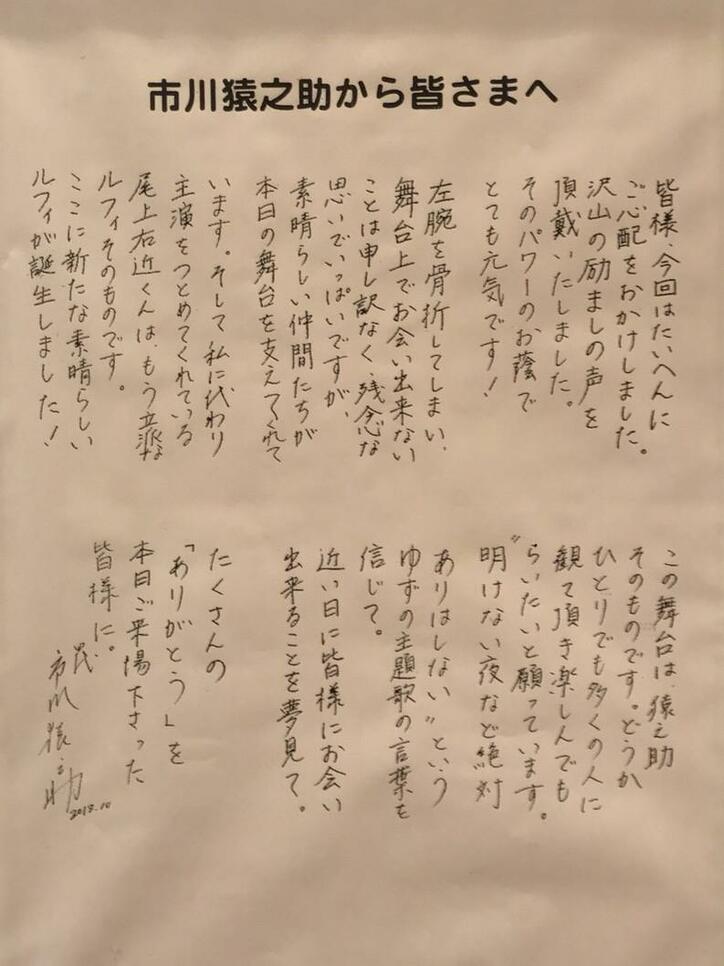 市川猿之助から皆さまへ
皆様、今回はたいへんに
ご心配をおかけしました。
沢山の励ましの声を
頂戴いたしました。
そのパワーのお蔭で
とても元気です!
左腕を骨折してしまい、
舞台上でお会い出来ない
ことは申し訳なく、残念な
思いでいっぱいですが、
素晴らしい仲間たちが
本日の舞台を支えてくれて
います。そして私に代わり
主演をつとめてくれている
尾上右近くんは、もう立派な
ルフィそのものです。
ここに新たな素晴らしい
ルフィが誕生しました!
この舞台は、猿之助
そのものです。どうか
ひとりでも多くの人に
観て頂き楽しんでも
らいたいと願っています。
"明けない夜など絶対
ありはしない"という
ゆずの主題歌の言葉を
信じて。
近い日に皆様にお会い
出来ることを夢見て。
たくさんの
「ありがとう」を
本日ご来場下さった
皆様に。
市川猿之助